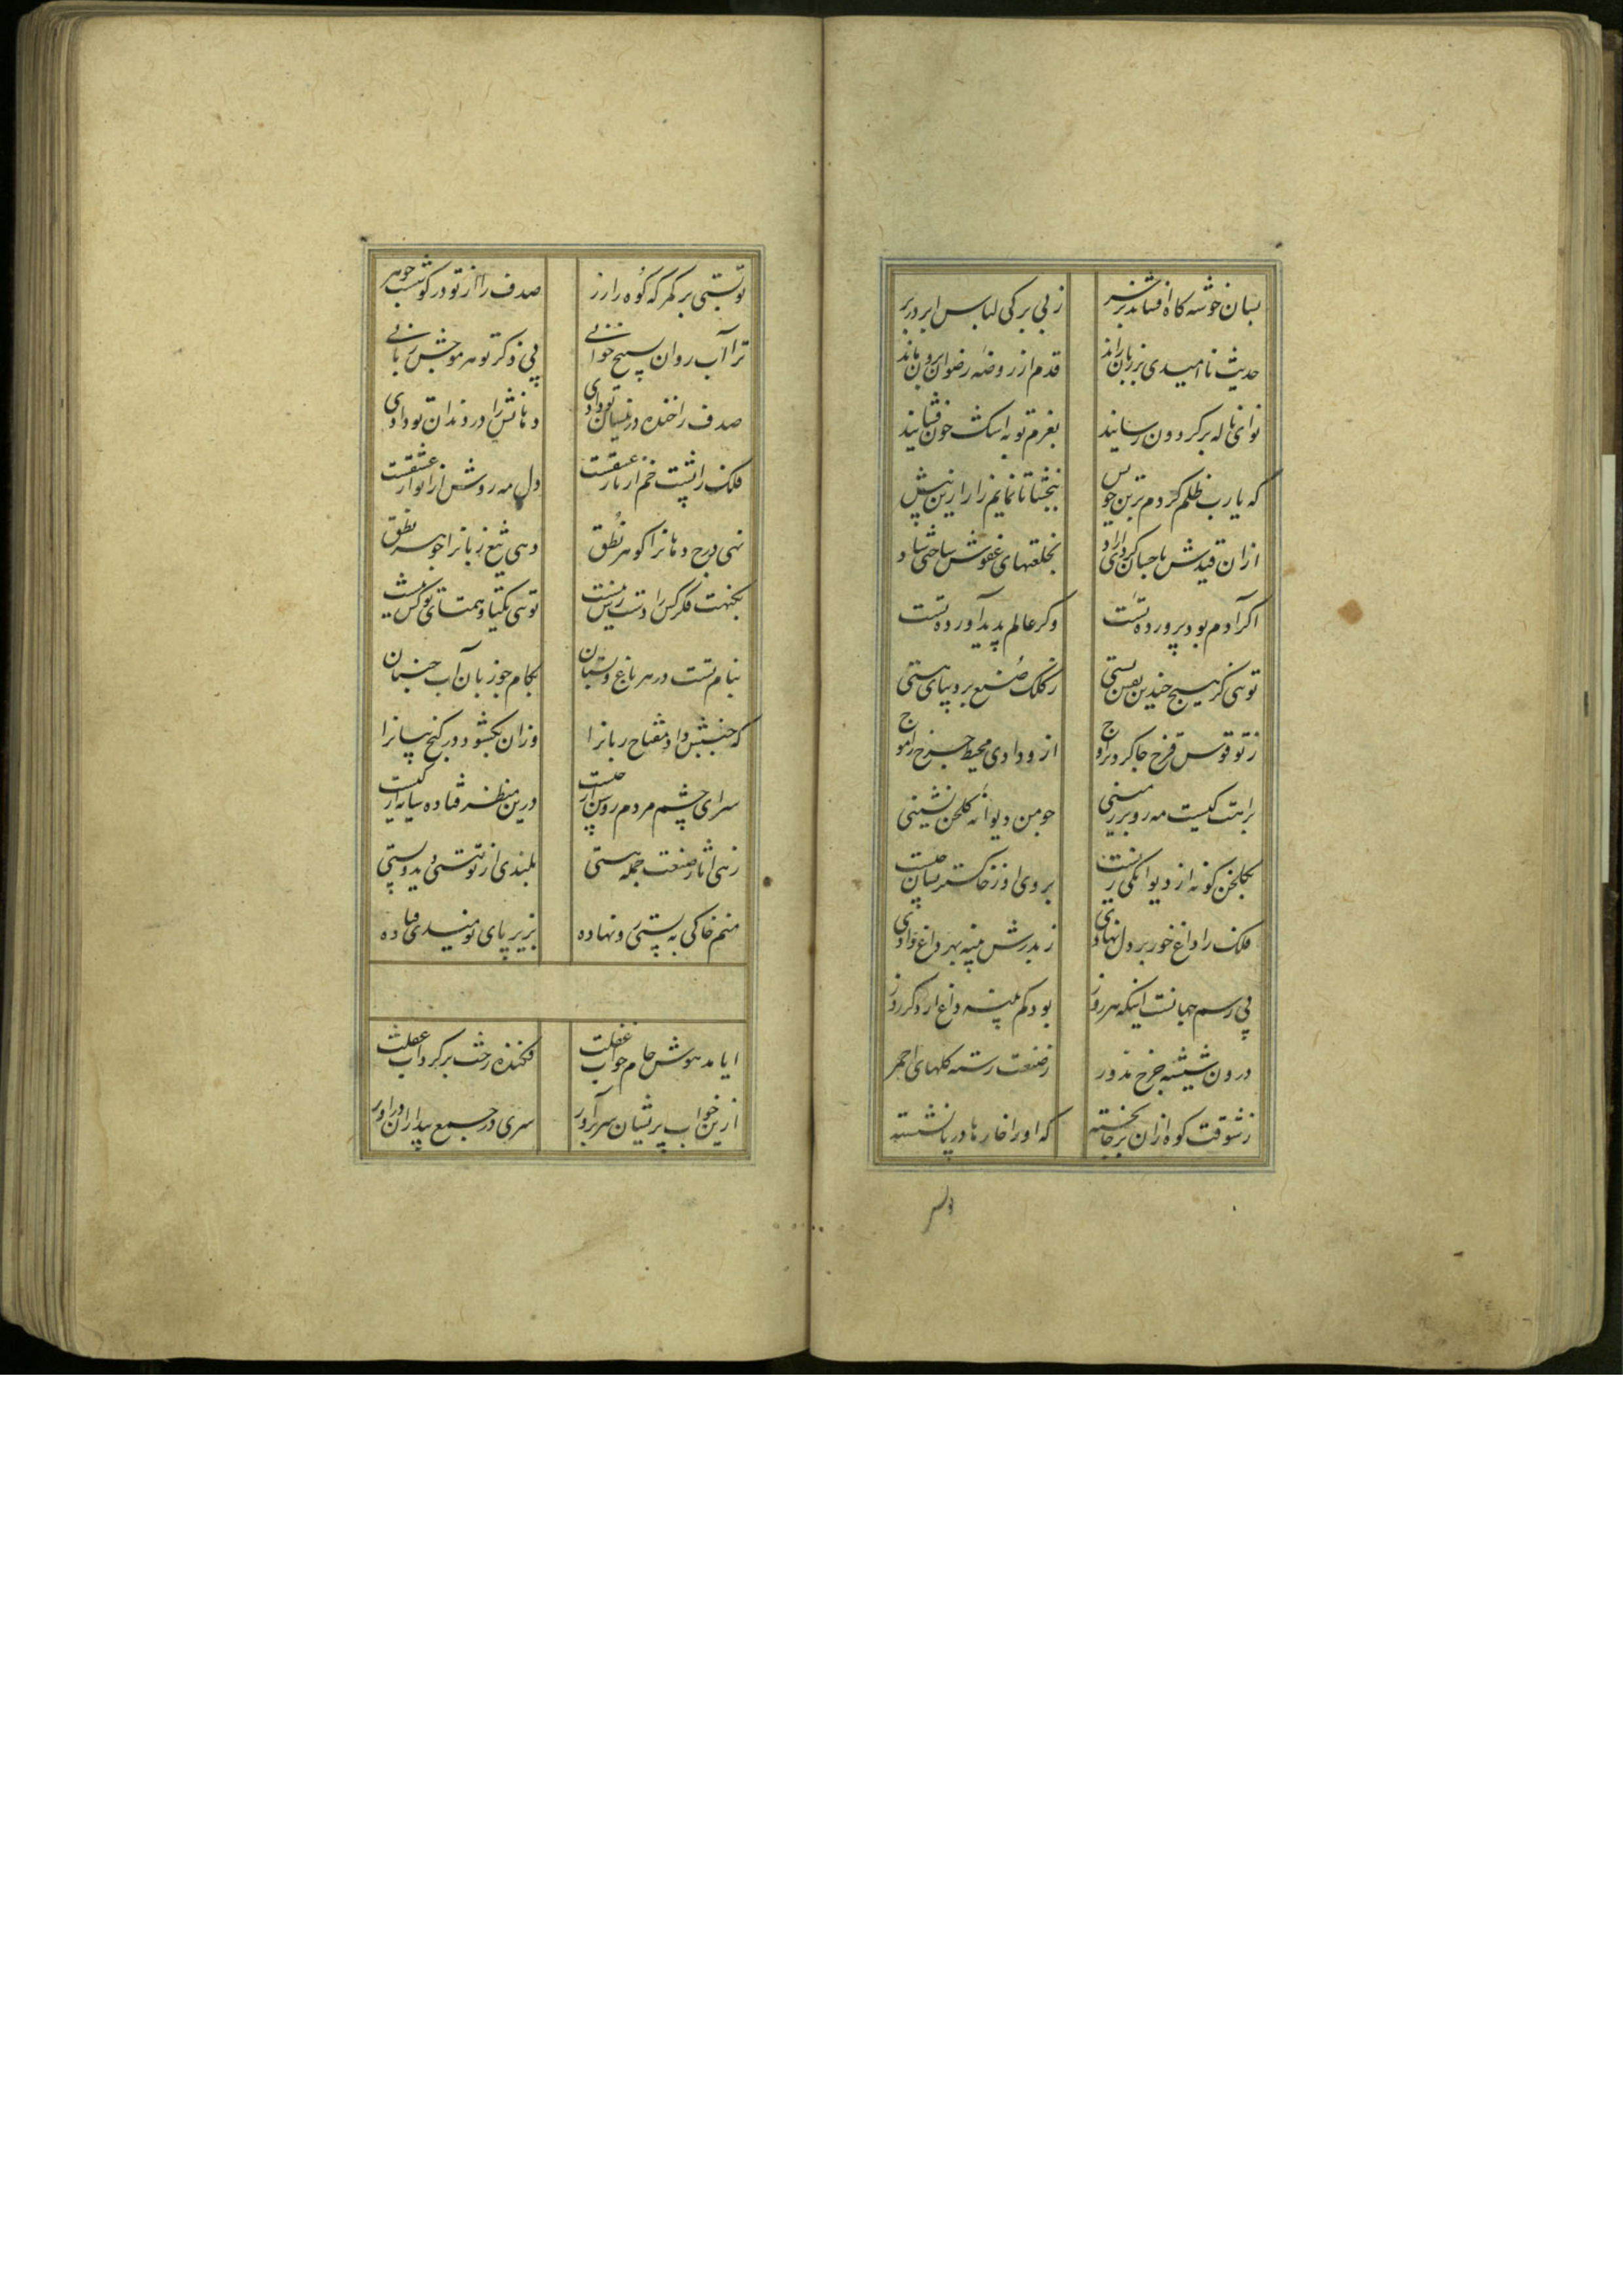 بسان خوشه کاه افشاند بر سر ز بی برکی لباس ابر در بر
حدیث ناامیدی بر زبان راند قدم از روضه رضوان برون ماند
نوای ناله بر کردون رسانید بعزم توبه اشک خون فشانید
که یارب ظلم کردم بر تن خویش ببخشا تا نمایم زار ازین بیش
از آن قیدش باحسان کردی آزاد بخلعتهای عفوش ساختی شاد
اکر آدم بود پرورده تست وکر عالم پدید آورده تست
توئی کز هیچ چندین نقش بستی ز کلک صنع بر دیبای هستی
ز تو قوس قزح جا کرد بر اوج ازو دادی محیط چرخ را موج
براهت کیست مه رو بر زمینی چو من دیوانه کلخن نشینی
بکلخن کر نه از دیوانکی زیست بروی او ز خاکستر نشان چیست
فلک را داغ خور بر دل نهادی ز بدرش پنبه بهر داغ دادی
پی رسم جهانست اینکه هر روز بود کم پنبه داغ از دکر روز
درون شیشه چرخ مدور ز صنعت رسته کلهای احمر
ز شوقت کوه از آن بر جا نشسته که او را خارها در پا شکسته
تو بستی بر کمر که کوه را زر صدف را از تو در کوشست جوهر
ترا آب روان تسبیح خوانی پی ذکر تو هر موجش زبانی
صدف را خنده در نیسان تو دادی دهانش را در دندان تو دادی
فلک را پشت خم از بار عشقت دل مه روشن از انوار عشقت
نهی درج دهانرا کوهر نطق دهی تیغ زبانرا جوهر نطق
بکنهت فکر کس را دسترس نیست توئی یکتا و همتای تو کس نیست
بنام تست در هر باغ و بستان بکام جو زبان آب جنبان
که جنبش داد مفتاح زبانرا وزان بکشود در کنج بیانرا
سرای چشم مردم روشن از چیست درین منظر فتاده سایه از کیست
زهی آثار صنعت جمله هستی بلندی از تو هستی دید و پستی
منم خاکی به پستی رو نهاده بزیر پای نومیدی فتاده
ایا مدهوش جام خواب غفلت فکنده رخت بر کرداب غفلت
ازین خواب پریشان سر برآور سری در جمع بیداران درآور